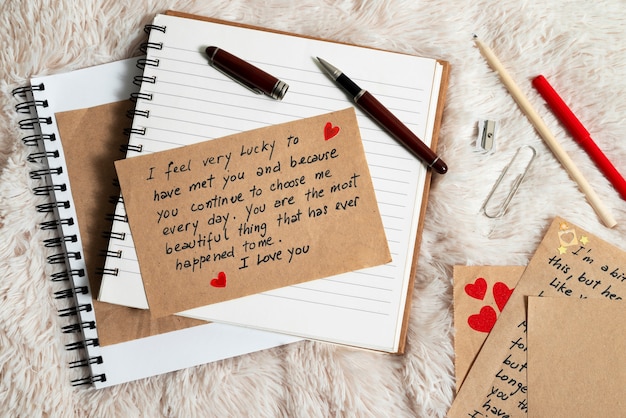 I feel very Lucky to
have met you and because
you continue to choose me
every day. You are the most
beautiful thing that has ever
happened to me.
I Love you
I'm a bit
this, but her
Like
for
but
Longe